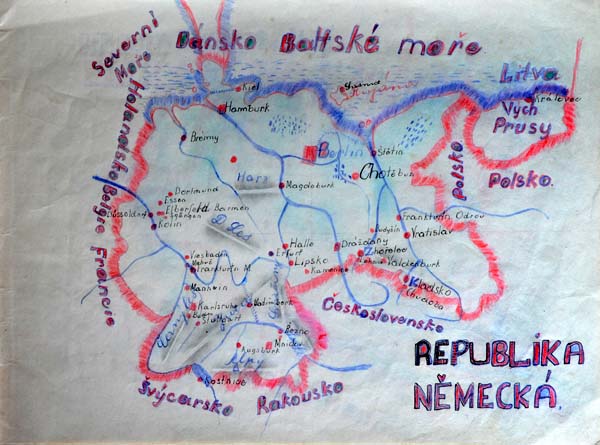 Severní
Moře
Dánsko
Baltské moře
Litva
Kiel
Královec
Hamburk
Vých
Prusy
Brémy
Holandsko
Berlin
Štětín
Polsko
Polsko.
Chotěbuh
Harz
Magdeburk
Belgie
Dortmund
Essen
Elberfeld
Barmen
Düsseldorf
Kolín
Frankfurt n Odrou
Vratislav
Budyšín
Halle
Erfurt
Lipsko
Drážďany
Zhořelec
Kamenice
Valdenburk
Francie
Viesbaden
Frankfurt n M.
Manheim
Kladsko
Karlsruhe
Stuttgart
Československo
Mnichov
Augsburk
Alpy
Kostnice
Švýcarsko
Rakousko
REPUBLIKA
NĚMECKÁ.